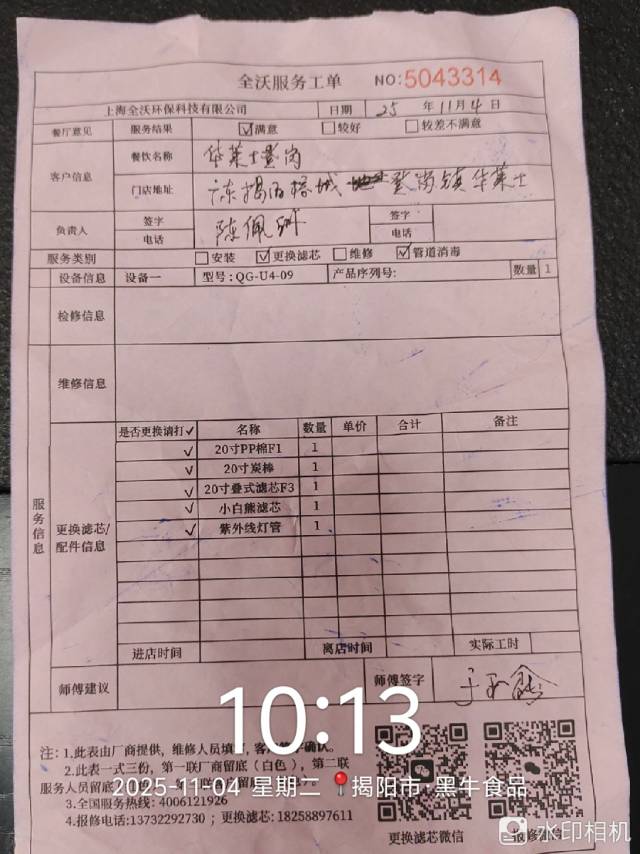 全沃服务工单 NO:5043314
上海全沃环保科技有限公司 日期 25 年 11 月 4 日
餐厅意见 服务结果 ☑满意 □较好 □较差不满意
客户信息 餐饮名称 华莱士登岗
门店地址 广东揭阳榕城 登岗镇华莱士
负责人 签字 陈佩 签字
电话 电话
服务类别 □安装 ☑更换滤芯 □维修 ☑管道消毒
设备信息 设备一 型号:QG-U4-09 产品序列号: 数量 1
检修信息
维修信息
服务信息
更换滤芯/配件信息
是否更换请打✓ 名称 数量 单价 合计 备注
✓ 20寸PP棉F1 1
✓ 20寸炭棒 1
✓ 20寸叠式滤芯F3 1
✓ 小白熊滤芯 1
✓ 紫外线灯管 1
进店时间 离店时间 实际工时
师傅建议 师傅签字
10:13
注: 1.此表由厂商提供，维修人员填 ，客 确认。
2.此表一式三份，第一联厂商留底（白色），第二联
服务人员留底
2025-11-04 星期二 揭阳市·黑牛食品
3.全国服务热线: 4006121926
4.报修电话:13732292730 ; 更换滤芯: 18258897611
更换滤芯微信
水印相机